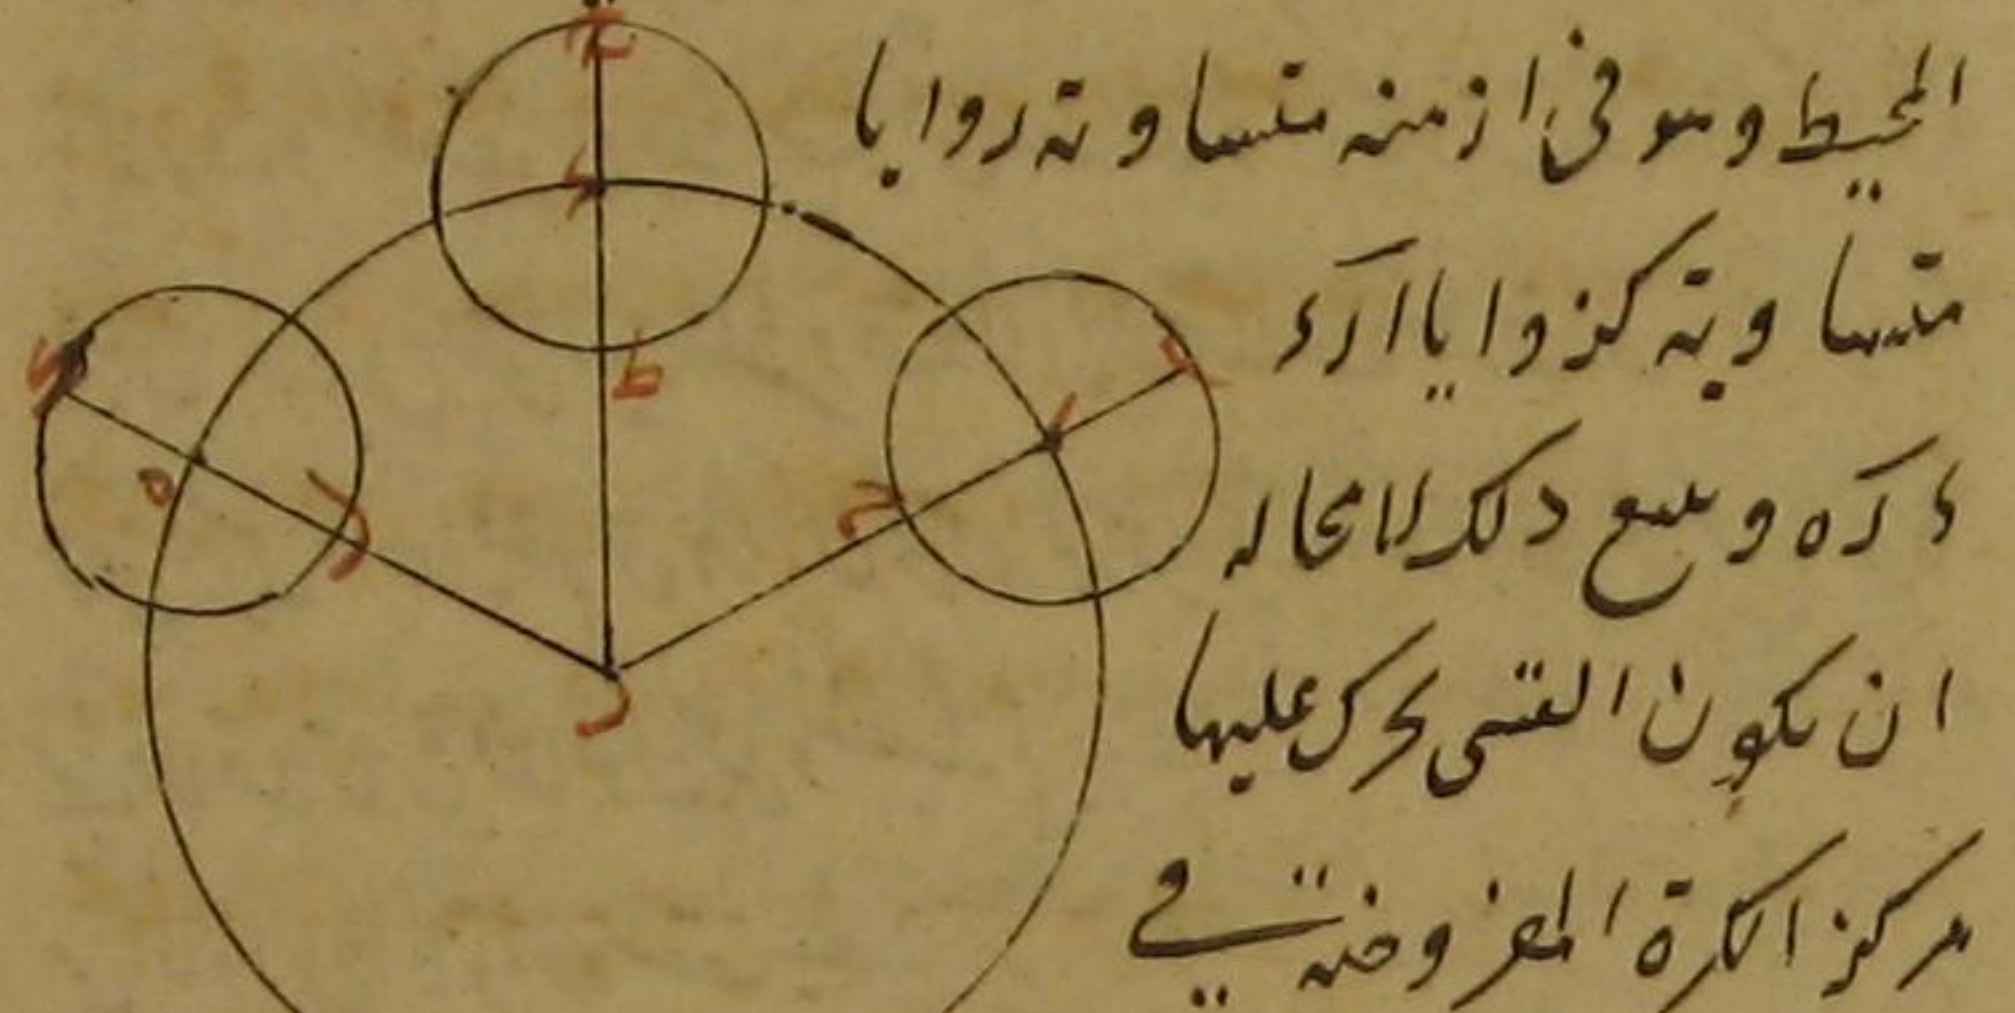 المحيط وهو في ازمنه متساوته روابا
متساويته كزوايا ارء
ء ره و سع دلك لامحاله
ان يكون القسى يحرك عليها
مركز الكرة المفروضه في
ط
ح
ر
ه